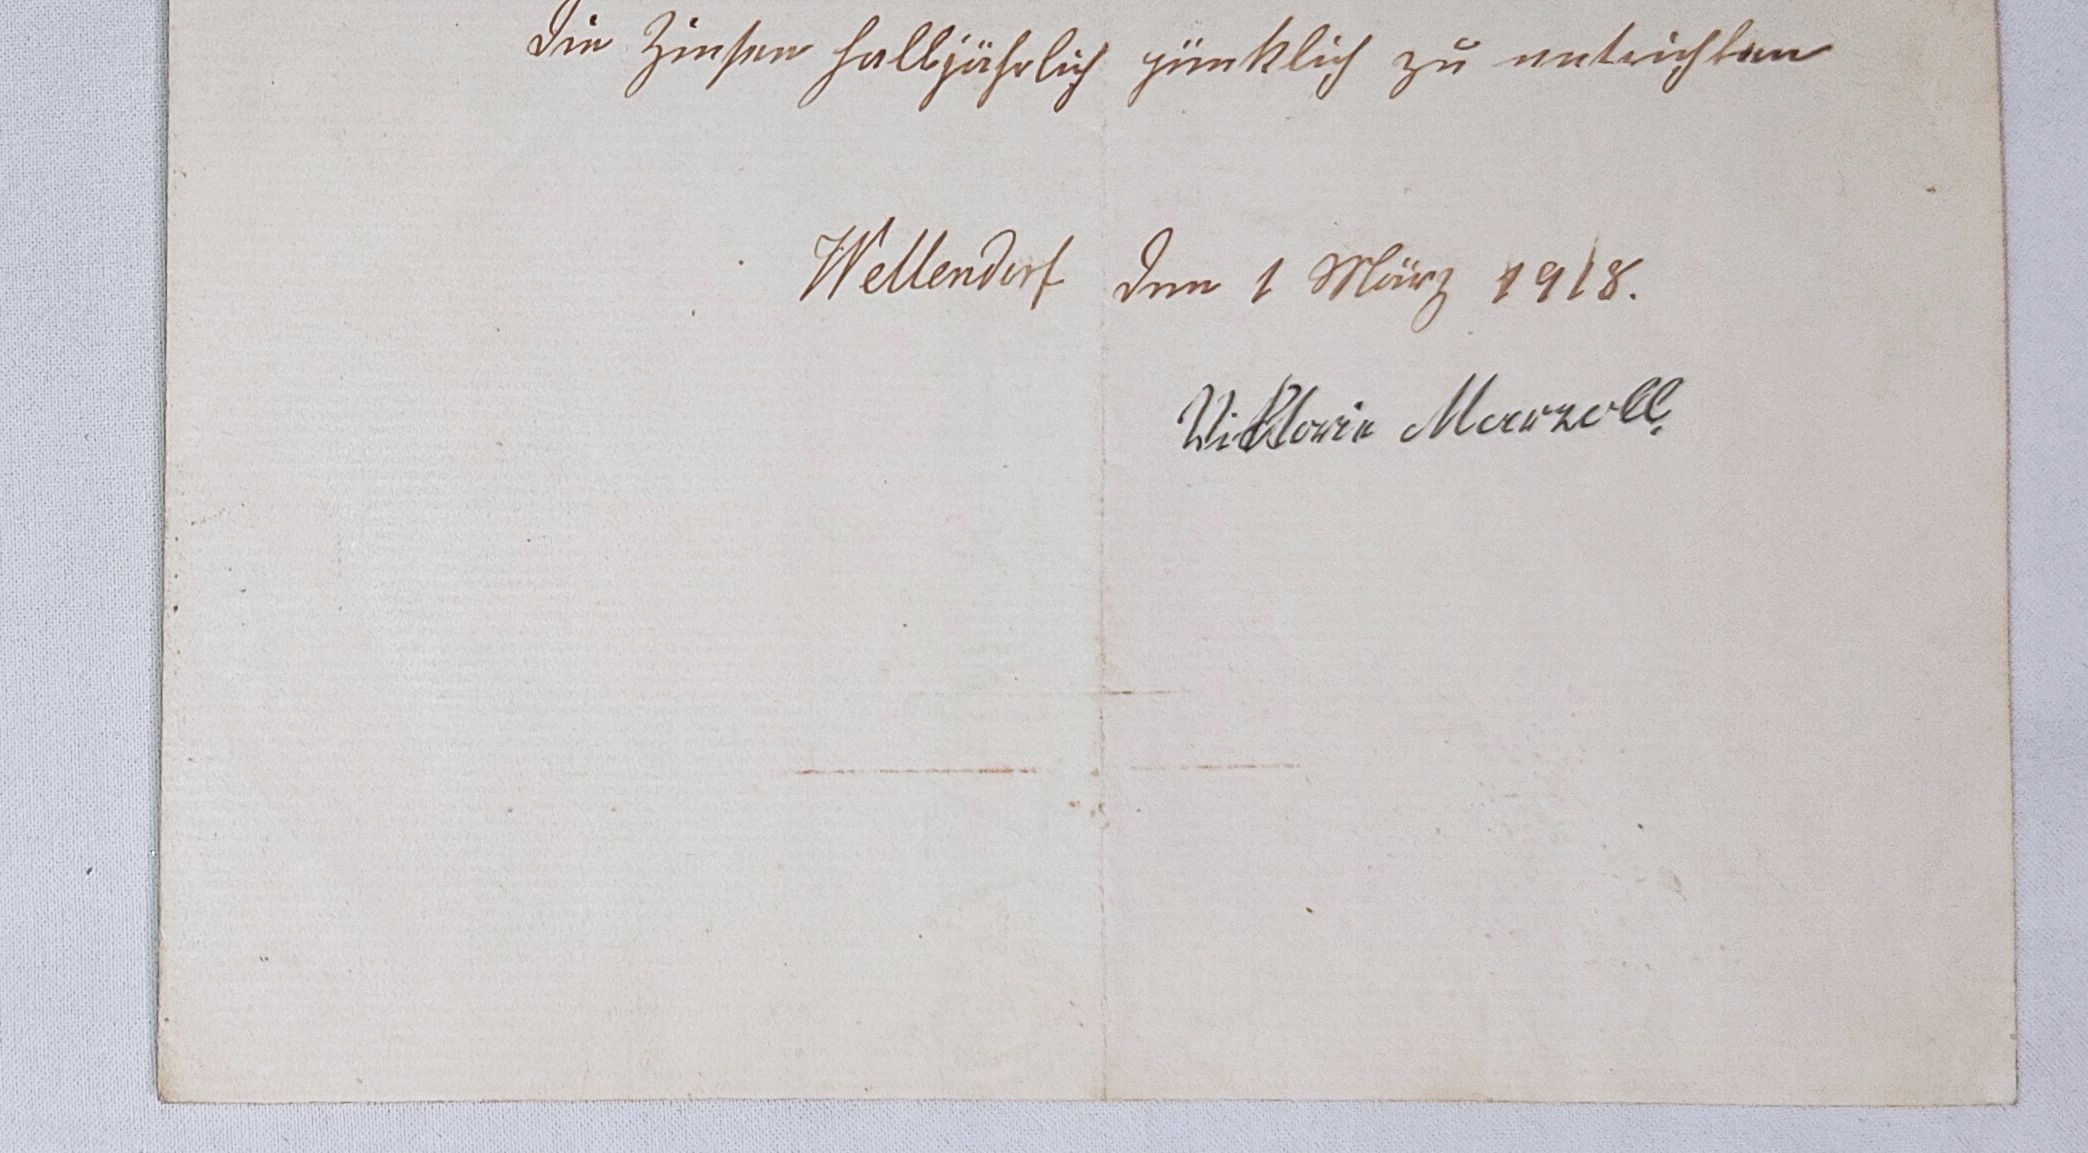 die Zinsen halbjährlich pünklich zu entrichten
Wellendorf den 1 März 1918.
Viktorie Marzoll.